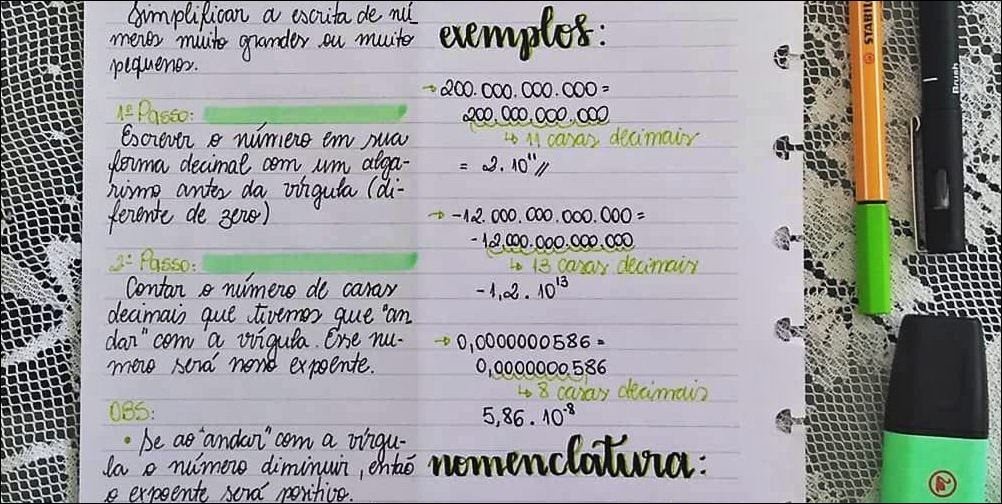 Simplificar a escrita de nú
meros muito grandes ou muito
pequenos.
1º Passo:
Escrever o número em sua
forma decimal com um alga-
rismo antes da vírgula (di-
ferente de zero)
2º Passo:
Contar o número de casas
decimais que tivemos que "an
dar" com a vírgula. Esse nu-
mero será nosso expoente.
OBS:
• Se ao "andar" com a vírgu-
la o número diminuir, então
o expoente será positivo.
exemplos:
→ 200.000.000.000 =
200.000.000.000
↳ 11 casas decimais
= 2.10¹¹//
→ -12.000.000.000.000 =
-12.000.000.000.000
↳ 13 casas decimais
-1,2.10¹³
→ 0,0000000586 =
0,0000000586
↳ 8 casas decimais
5,86.10⁻⁸
nomenclatura:
STABILO
Brush